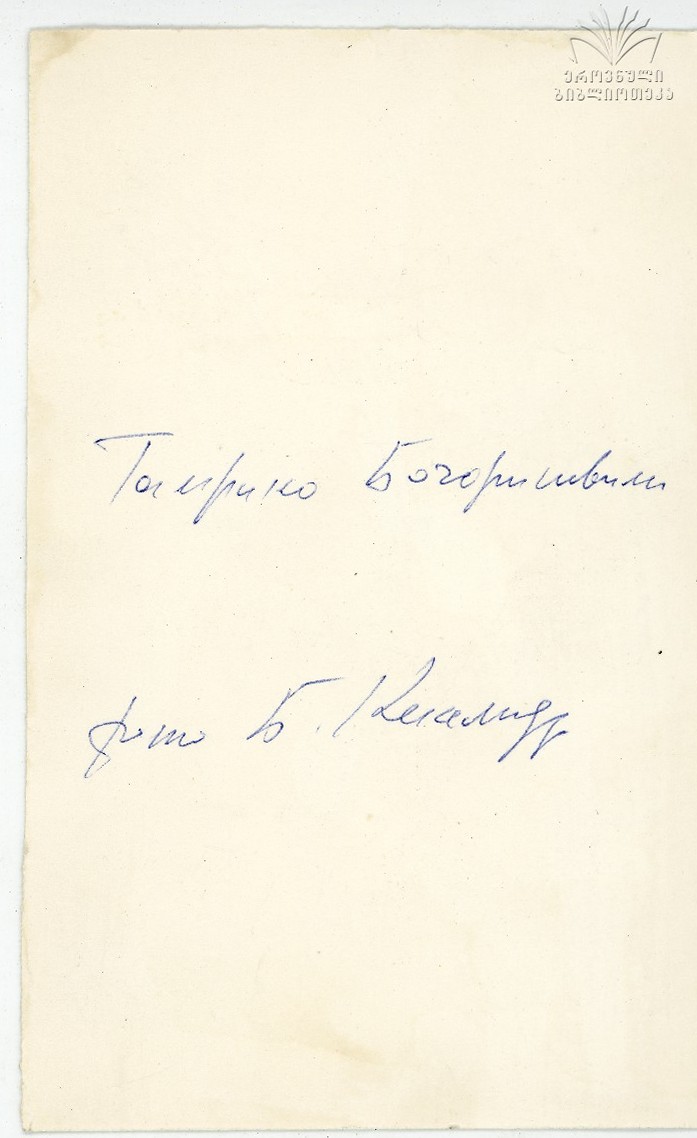 ეროვნული
ბიბლიოთეკა
Тамрико Бочоришвили
фото Б.